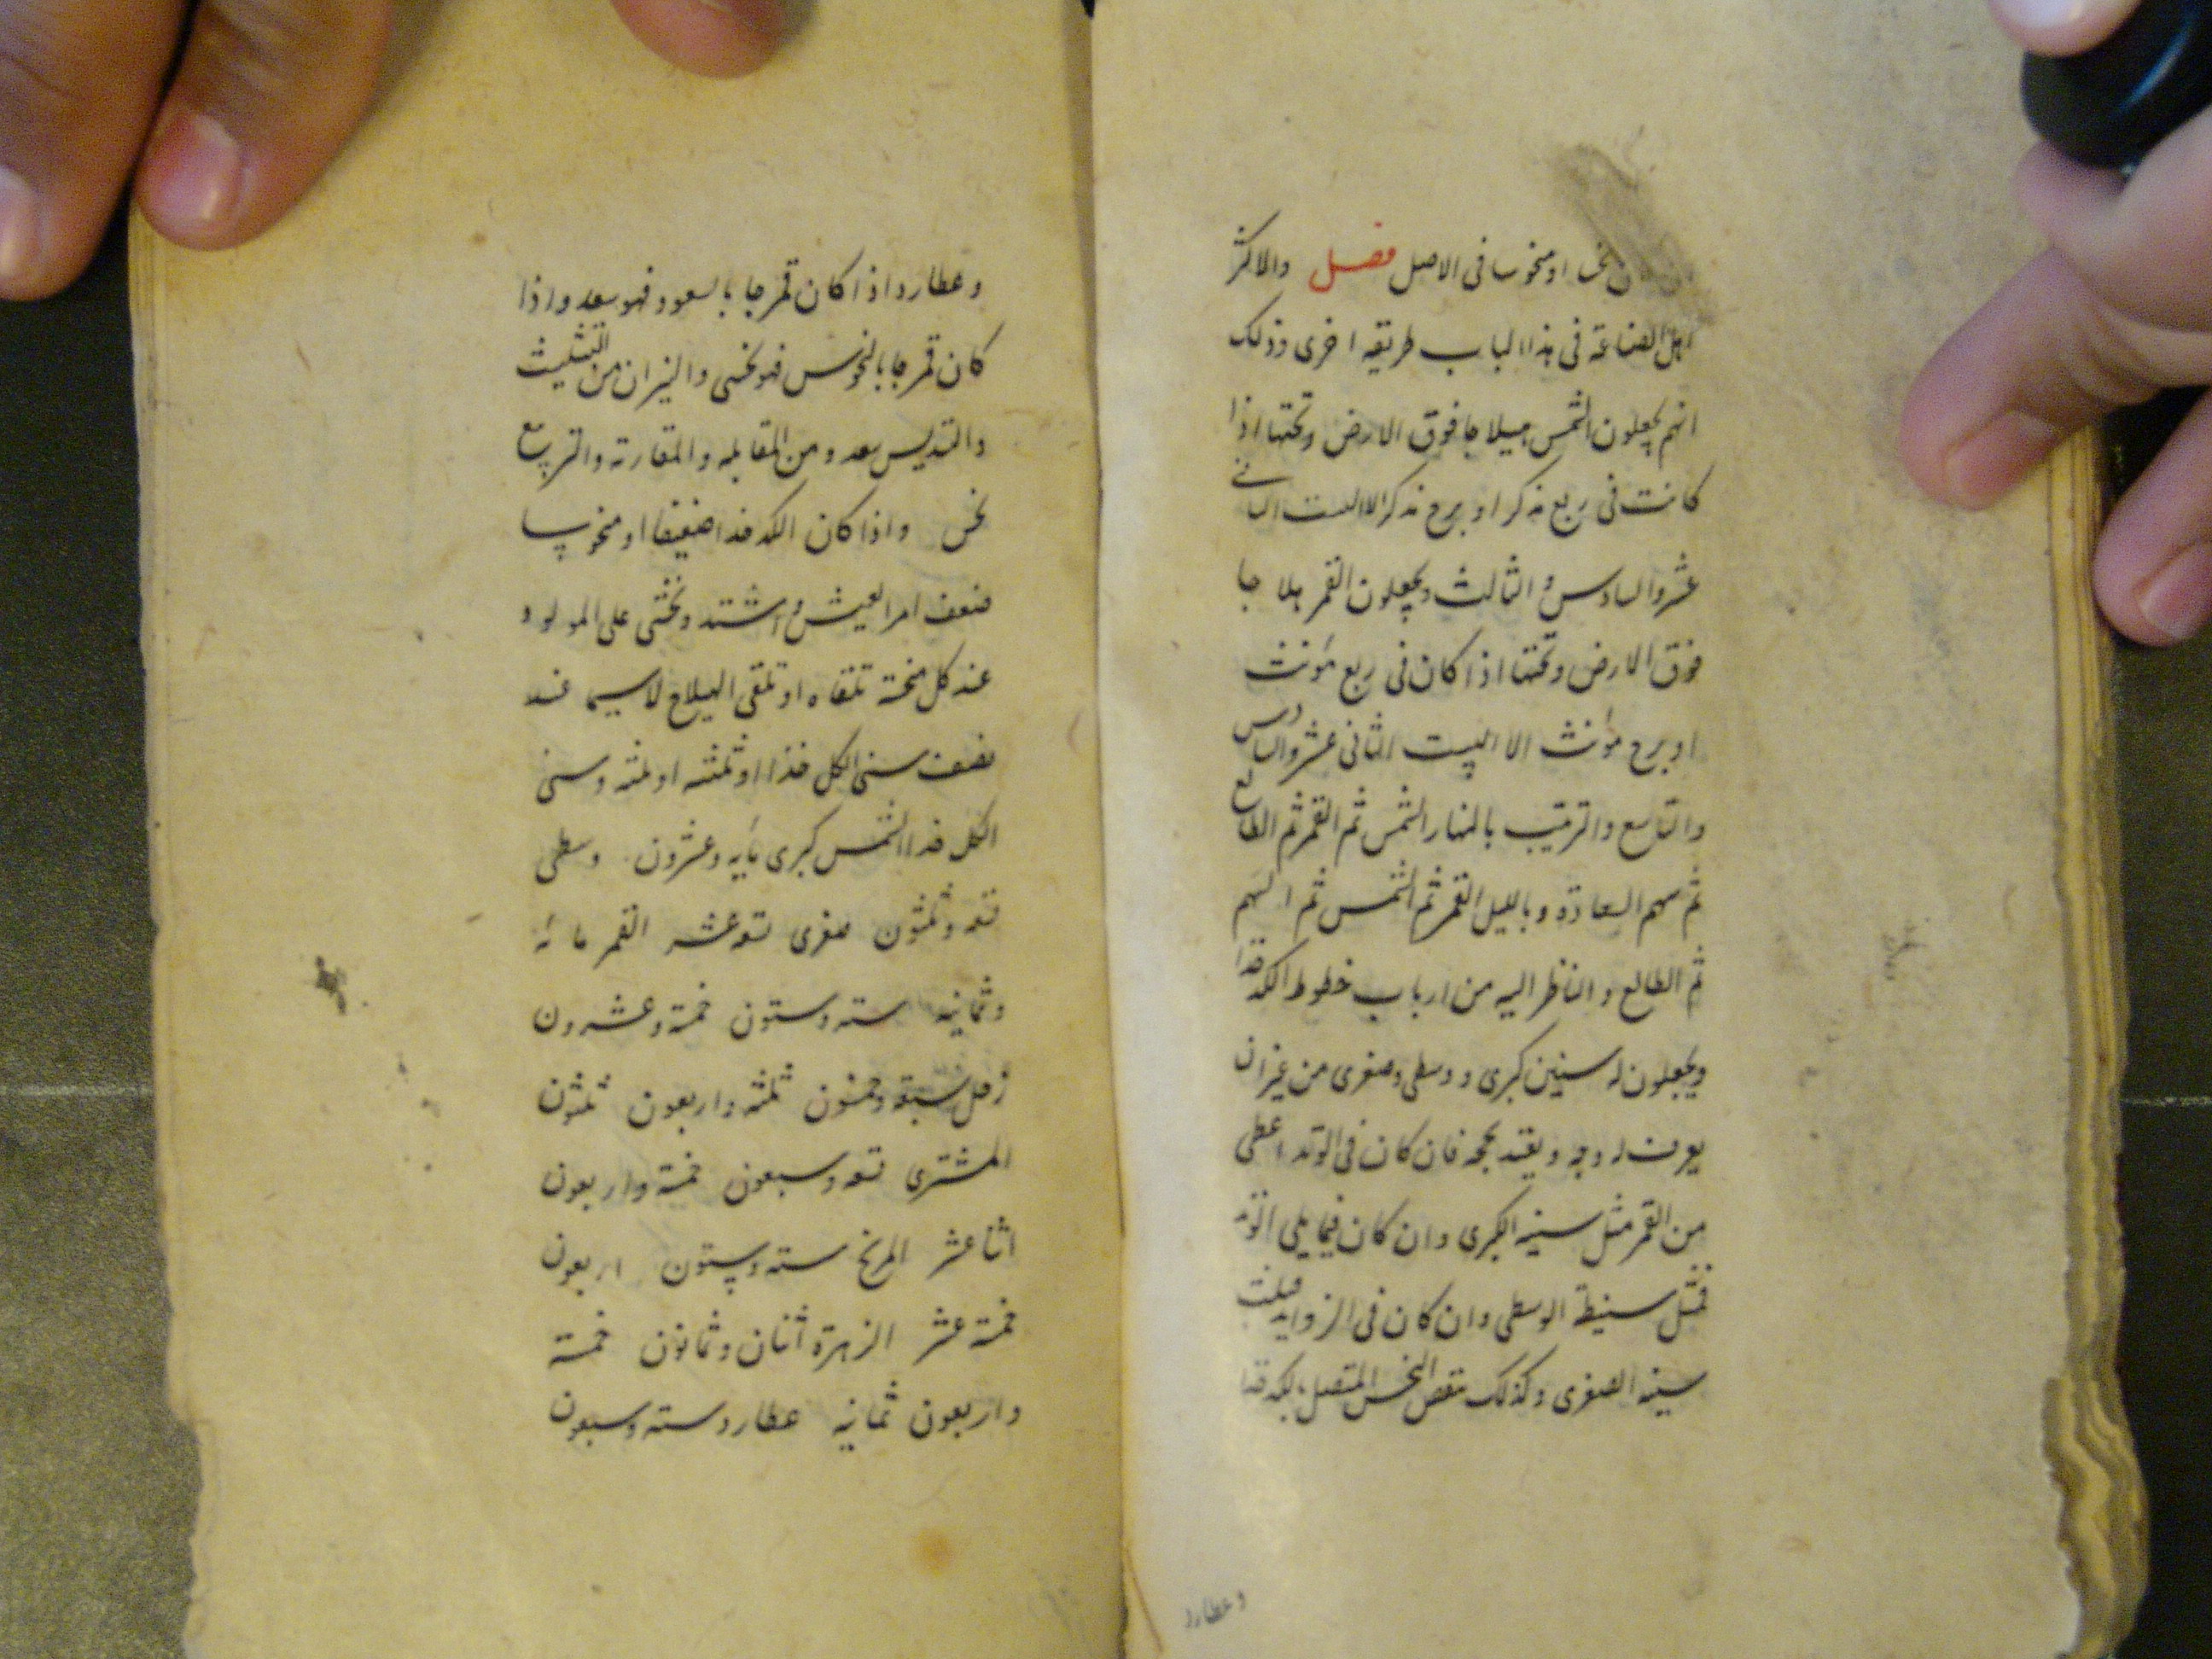 نحسا او منحوسا فى الاصل فصل والاكثر
اهل الصناعة فى هذا الباب طريقه اخرى وذلك
انهم يجعلون الشمس هيلاجا فوق الارض وتحتها اذا
كانت فى ربع مذكر او برج مذكر الا البيت الثانى
عشر والسادس و الثالث ويجعلون القمر هيلاجا
فوق الارض وتحتها اذا كان فى ربع مؤنث
او برج مؤنث الا البيت الثانى عشر والسادس
والتاسع والترتيب بالنهار الشمس ثم القمر ثم الطالع
ثم سهم السعادة وبالليل القمر ثم الشمس ثم السهم
ثم الطالع والناظر اليه من ارباب حظوظ الكدخدا
ويجعلون له سنين كبرى ووسطى وصغرى من غير ان
يعرف له وجه ويقيد بحجه فان كان فى الوتد اعطى
من القمر مثل سنيه الكبرى وان كان فيما يلى الوتد
فمثل سنيه الوسطى وان كان فى الزوايد فمثل
سنيه الصغرى وكذلك تنقص النحس المتصل بالكدخدا
وعطارد
وعطارد اذا كان ممتزجا بالسعود فهو سعد واذا
كان ممتزجا بالنحوس فهو نحس والنيران من التثليث
والتسديس سعد ومن المقابله والمقارنة والتربيع
نحس واذا كان الكدخدا ضعيفا او منحوسا
ضعف امر العيش و اشتد ويخشى على المولود
عند كل منحسة تلقاه او تلقى الهيلاج لاسيما عند
نصف سنى الكدخدا او ثلثه او ثلثيه وسنى
الكدخدا الشمس كبرى مايه وعشرون وسطى
تسعه وثلثون صغرى تسعه عشر القمر مائه
وثمانيه سته وستون خمسة وعشرون
زحل سبعة وخمسون ثلثه واربعون ثلثون
المشترى تسعه وسبعون خمسة واربعون
اثنا عشر المريخ سته وستون اربعون
خمسة عشر الزهرة اثنان وثمانون خمسة
واربعون ثمانيه عطارد سته وسبعون